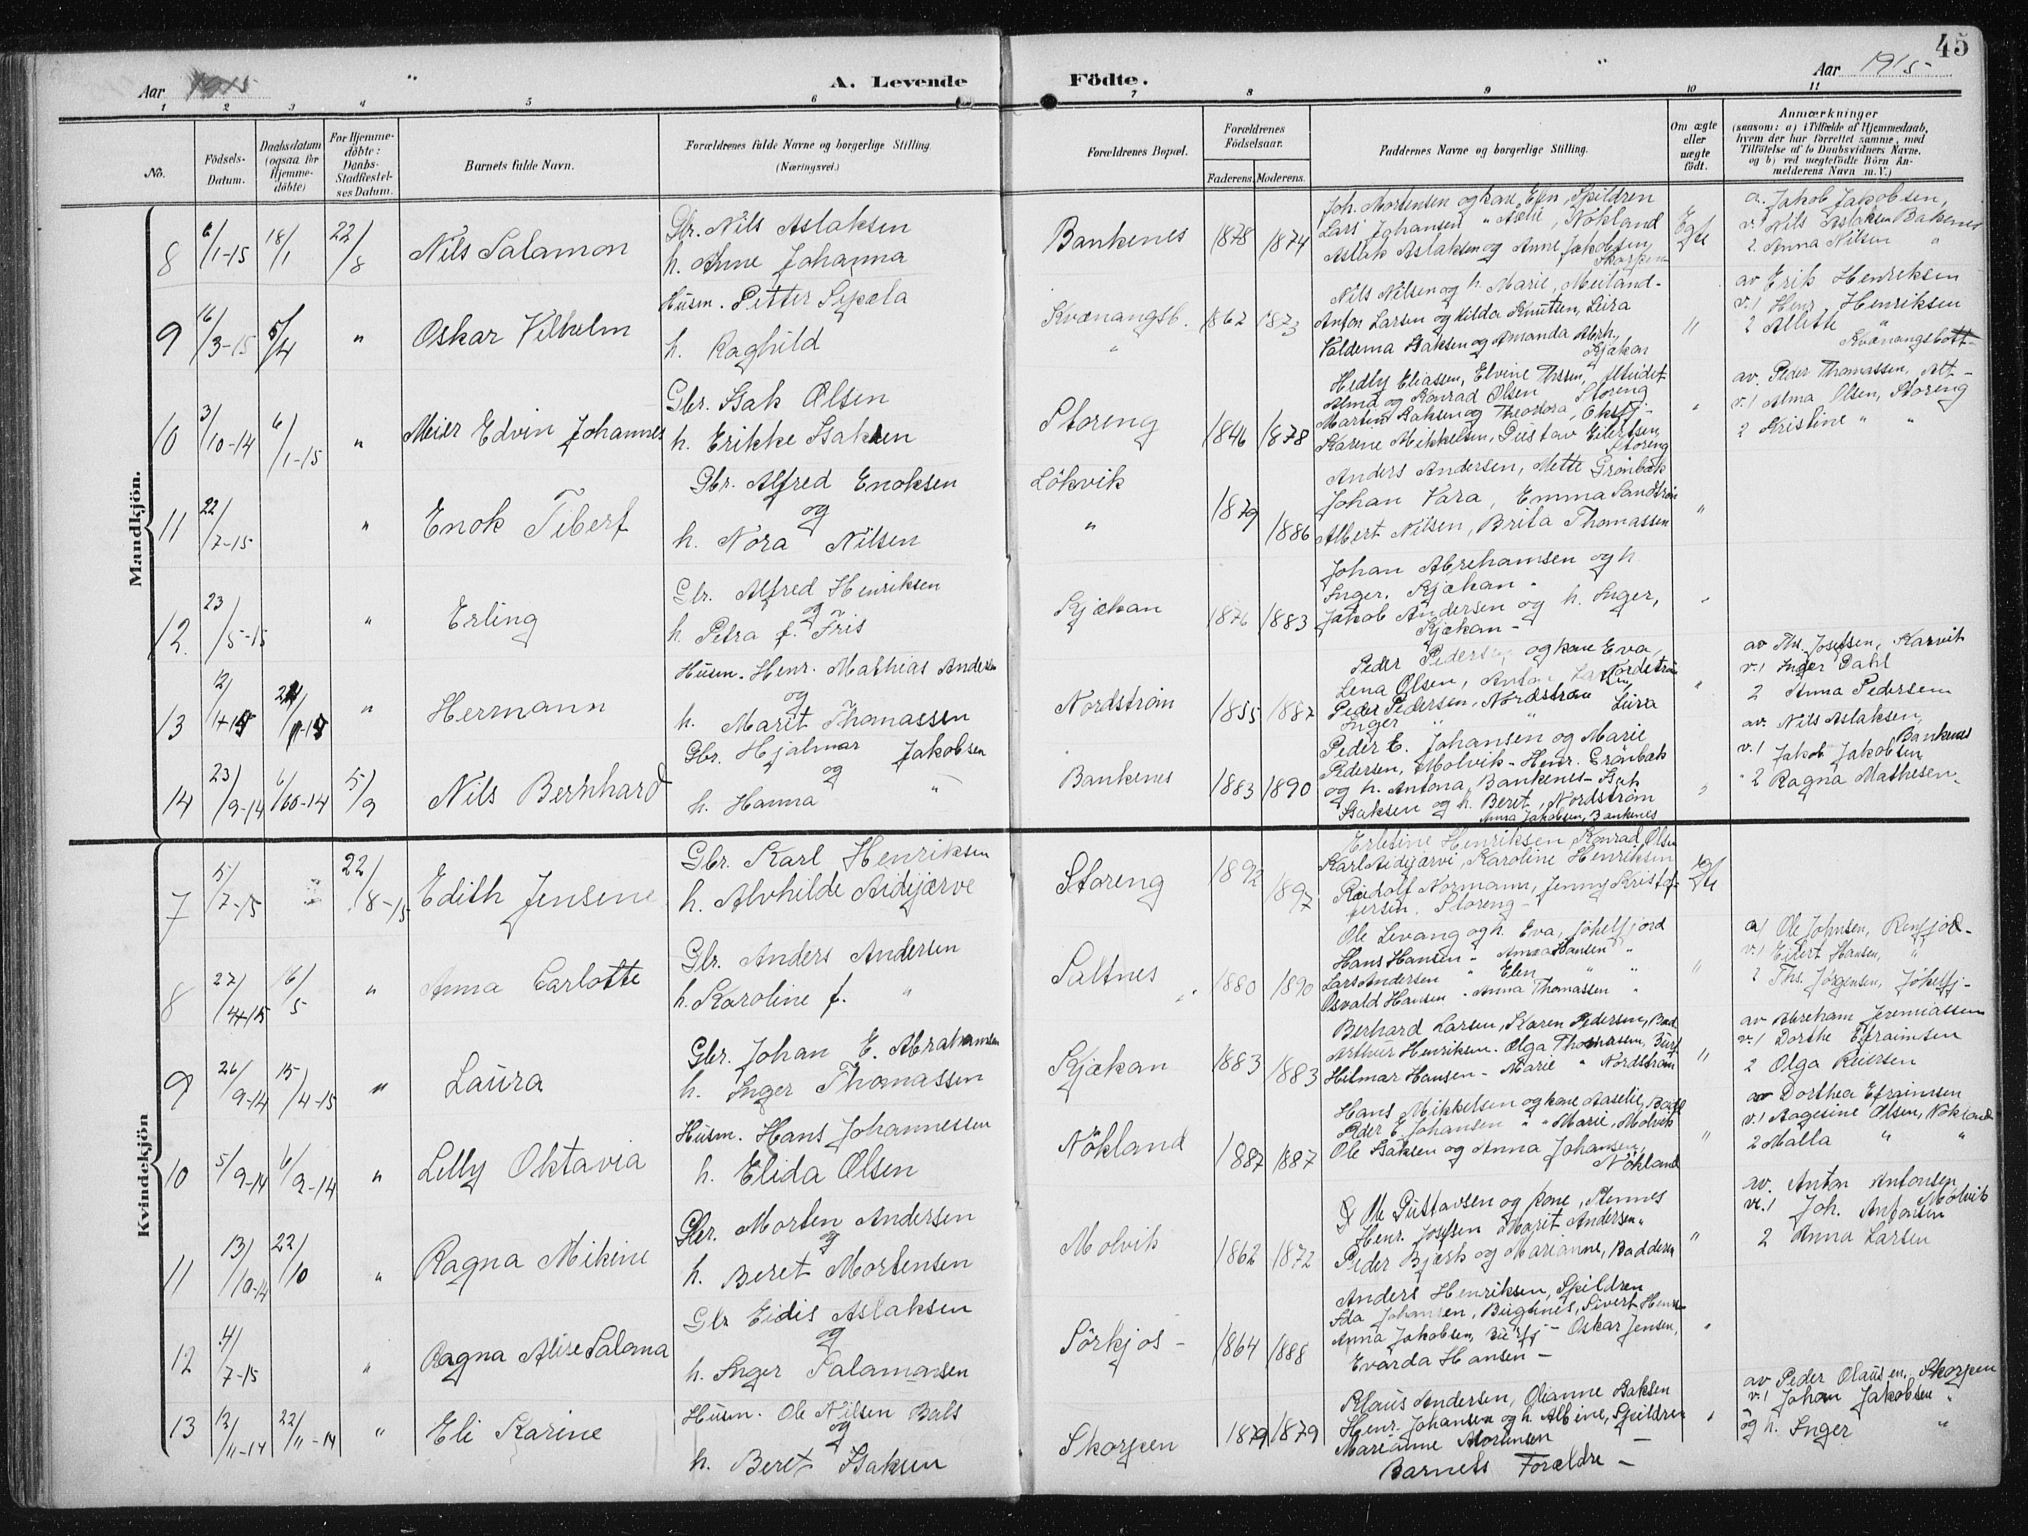 45
Aar 1915 " A. Levende Födte. " Aar 1915
1 2 3 4 5 6 7 8 9 10 11
No.
Födsels-Datum.
Daabsdatum (ogsaa for Hjemme-döbte)
For Hjemme-döbte: Daabs-Stadfæstel-ses Datum.
Barnets fulde Navn.
Forældrenes fulde Navne og borgerlige Stilling.
(Næringsvei.)
Forældrenes Bopæl.
Forældrenes Födselsaar.
Faderens. Moderens.
Faddernes Navne og borgerlige Stilling.
Om ægte eller uægte födt.
Anmærkninger
(saasom: a) i Tilfælde af Hjemmedaab,
hvem der har forrettet samme, med
Tilföielse af to Daabsvidners Navne.
og b) ved uægtefödte Börn An-
melderens Navn m. V.)
Mandkjön.
8 6/1-15 18/1 22/8 Nils Salamon
Gbr. Nils Aslaksen
h. Anne Johanna
Bankenes 1878 1874
Joh. Mortensen og kone Elen, Spildren
Lars Johansen " Nökland
Aslak Aslaksen og Anne Jakobsen,
Skorpen
Egte
a. Jakob Jakobsen,
v. 1 Nils Aslaksen Bakenes
2 Anna Nilsen "
9 16/3-15 5/4 " Oskar Vilhelm
Husm. Petter Sepæla
h. Raghild
Kvænangsb. 1862 1873
"
Nils Nilsen og h. Marie, Meiland-
Anton Larsen og Hilda Knutsen, Lura
Valdema Isaksen og Amanda Abrh.,
Kjækan
"
av Erik Henriksen
v. 1 Henr. Henriksen
2 Alette "
Kvænangsbott-
10 3/10-14 6/1-15 " Meier Edvin Johannes
Gbr. Isak Olsen
h. Erikke Isaksen
Storeng 1846 1878
Hedly Eliassen, Elvine Thssen, Alteidet
Alma og Konrad Olsen Storeng
Martin Isaksen og Theodora, Eksfj-
Karine Mikkelsen, Gustav Eilertsen,
Storeng
"
av. Peder Thomassen, Alt-
v. 1 Alma Olsen, Storeng
2 Kristine " "
11 22/7-15 " Enok Tibert
Gbr. Alfred Enoksen
og
h. Nora Nilsen
Lökvik 1879 1886
"
Anders Andersen, Mette Grønbæk
Johan Vara, Emma Sandstrøm
Albert Nilsen, Brita Thomassen
"
12. 23/5-15 " Erling
Gbr. Alfred Henriksen
og
h. Petra f. Friis
Kjækan 1876 1883
Johan Abrehamsen og h.
Inger, Kjækan -
Jakob Andersen og h. Inger,
Kjækan -
"
13 12/ " Hermann
Husm. Henr. Mathias Andersen
og
h. Marit Thomassen
Nordstrøm 1855 1887
Peder Pedersen og kone Eva,
Lena Olsen, Anton Larsen Nordstrøm
Peder Pedersen, Nordstrøm Lura
Inger " "
"
av Ths. Josefsen, Karvik
v. 1 Inger Dahl
2 Anna Pedersen
14 23/9-14 6/10-14 5/9 Nils Bernhard
Gbr. Hjalmar Jakobsen
og
h. Hanna "
Bankenes 1883 1890
Peder E. Johansen og Marie
Pedersen, Molvik - Henr. Grønbæk
og h. Antona, Bankenes - Isak
Isaksen og h. Beret, Nordstrøm
Anna Jakobsen, Bankenes
"
av. Nils Aslaksen,
Bankenes
v. 1 Jakob Jakobsen
" 2 Ragna Mathesen -
Kvindekjön
7 5/7-15 " 22/8-15 Edith Jensine
Gbr. Karl Henriksen
h. Alvhilde Aidijærve
Storeng 1892 1897
Erlétine Henriksen, Konrad Olsen
Karl Aidijærvi, Karoline Henriksen
Rudolf Normann, Jenny Kristof-
fersen. Storeng -
Egte
8 27/4-15 16/5 " Anna Carlotte
Gbr. Anders Andersen
h. Karoline f. "
Saltnes 1880 1890
Ole Levang og h. Eva, Jøkelfjord
Hans Hansen - Anna Hansen "
Lars Andersen " Elen " "
Osvald Hansen - Anna Thomassen "
"
a/ Ole Johnsen, Renfjord-
v. 1 Eilert Hansen, "
2 Ths. Jørgensen, Jøkelfj-
9 26/9-14 15/4-15 " Laura
Gbr. Johan E. Abrahamsen
h. Inger Thomassen
Kjækan 1883 1883
Berhard Larsen, Karen Pedersen, Bad
Arthur Henriksen. Olga Thomasen, Burf
Hilmar Hansen - Marie " Nordstrøm
"
av Abreham Jeremiassen
v. 1 Dorthe Efraimsen
2 Olga Reiersen
10 5/9-14 6/9-14 " Lilly Oktavia
Husm. Hans Johannessen
h. Elida Olsen
Nökland 1887 1887
Hans Mikkelsen og kone Aaselie, Badd
Peder E. Johansen " " Marie, Molvik
Ole Isaksen og Anna Johansen,
Nökland
"
av Dorthea Efraimsen
v. 1 Aagesine Olsen, Nökland
2 Malla " "
11 13/10-14 22/10 " Ragna Mikine
Gbr. Morten Andersen
og
h. Beret Mortensen
Molvik 1862 1872
Ole Gustavsen og kone, Stennes
Henr. Josefsen Marit Andersen "
Peder Bjerk og Marianne, Badderen
"
av. Anton Antonsen
Molvik
v. 1 Joh. Antonsen
2 Anna Larsen
12 4/7-15 " Ragna Alise Salama
Gbr Eidis Aslaksen
og
h. Inger Salamonsen
Sörkjos - 1864 1888
Anders Henriksen, Spildren
Ida Johansen, Bugtnes, Sivert Henr-
Anna Jakobsen, Burfj - Oskar Jensen,
Evarda Hansen -
"
13 12/11-14 22/11-14 " Eli Karine
Husm. Ole Nilsen Bals
og
h. Beret Isaksen
Skorpen 1879 1879
Klaus Andersen, Olianne Isaksen
Henr. Johansen og h. Albine, Spildren
Marianne Mortensen -
Barnets Forældre -
"
av Peder Olausen, Skorpen
v. 1 Johan Jakobsen "
og h. Inger "